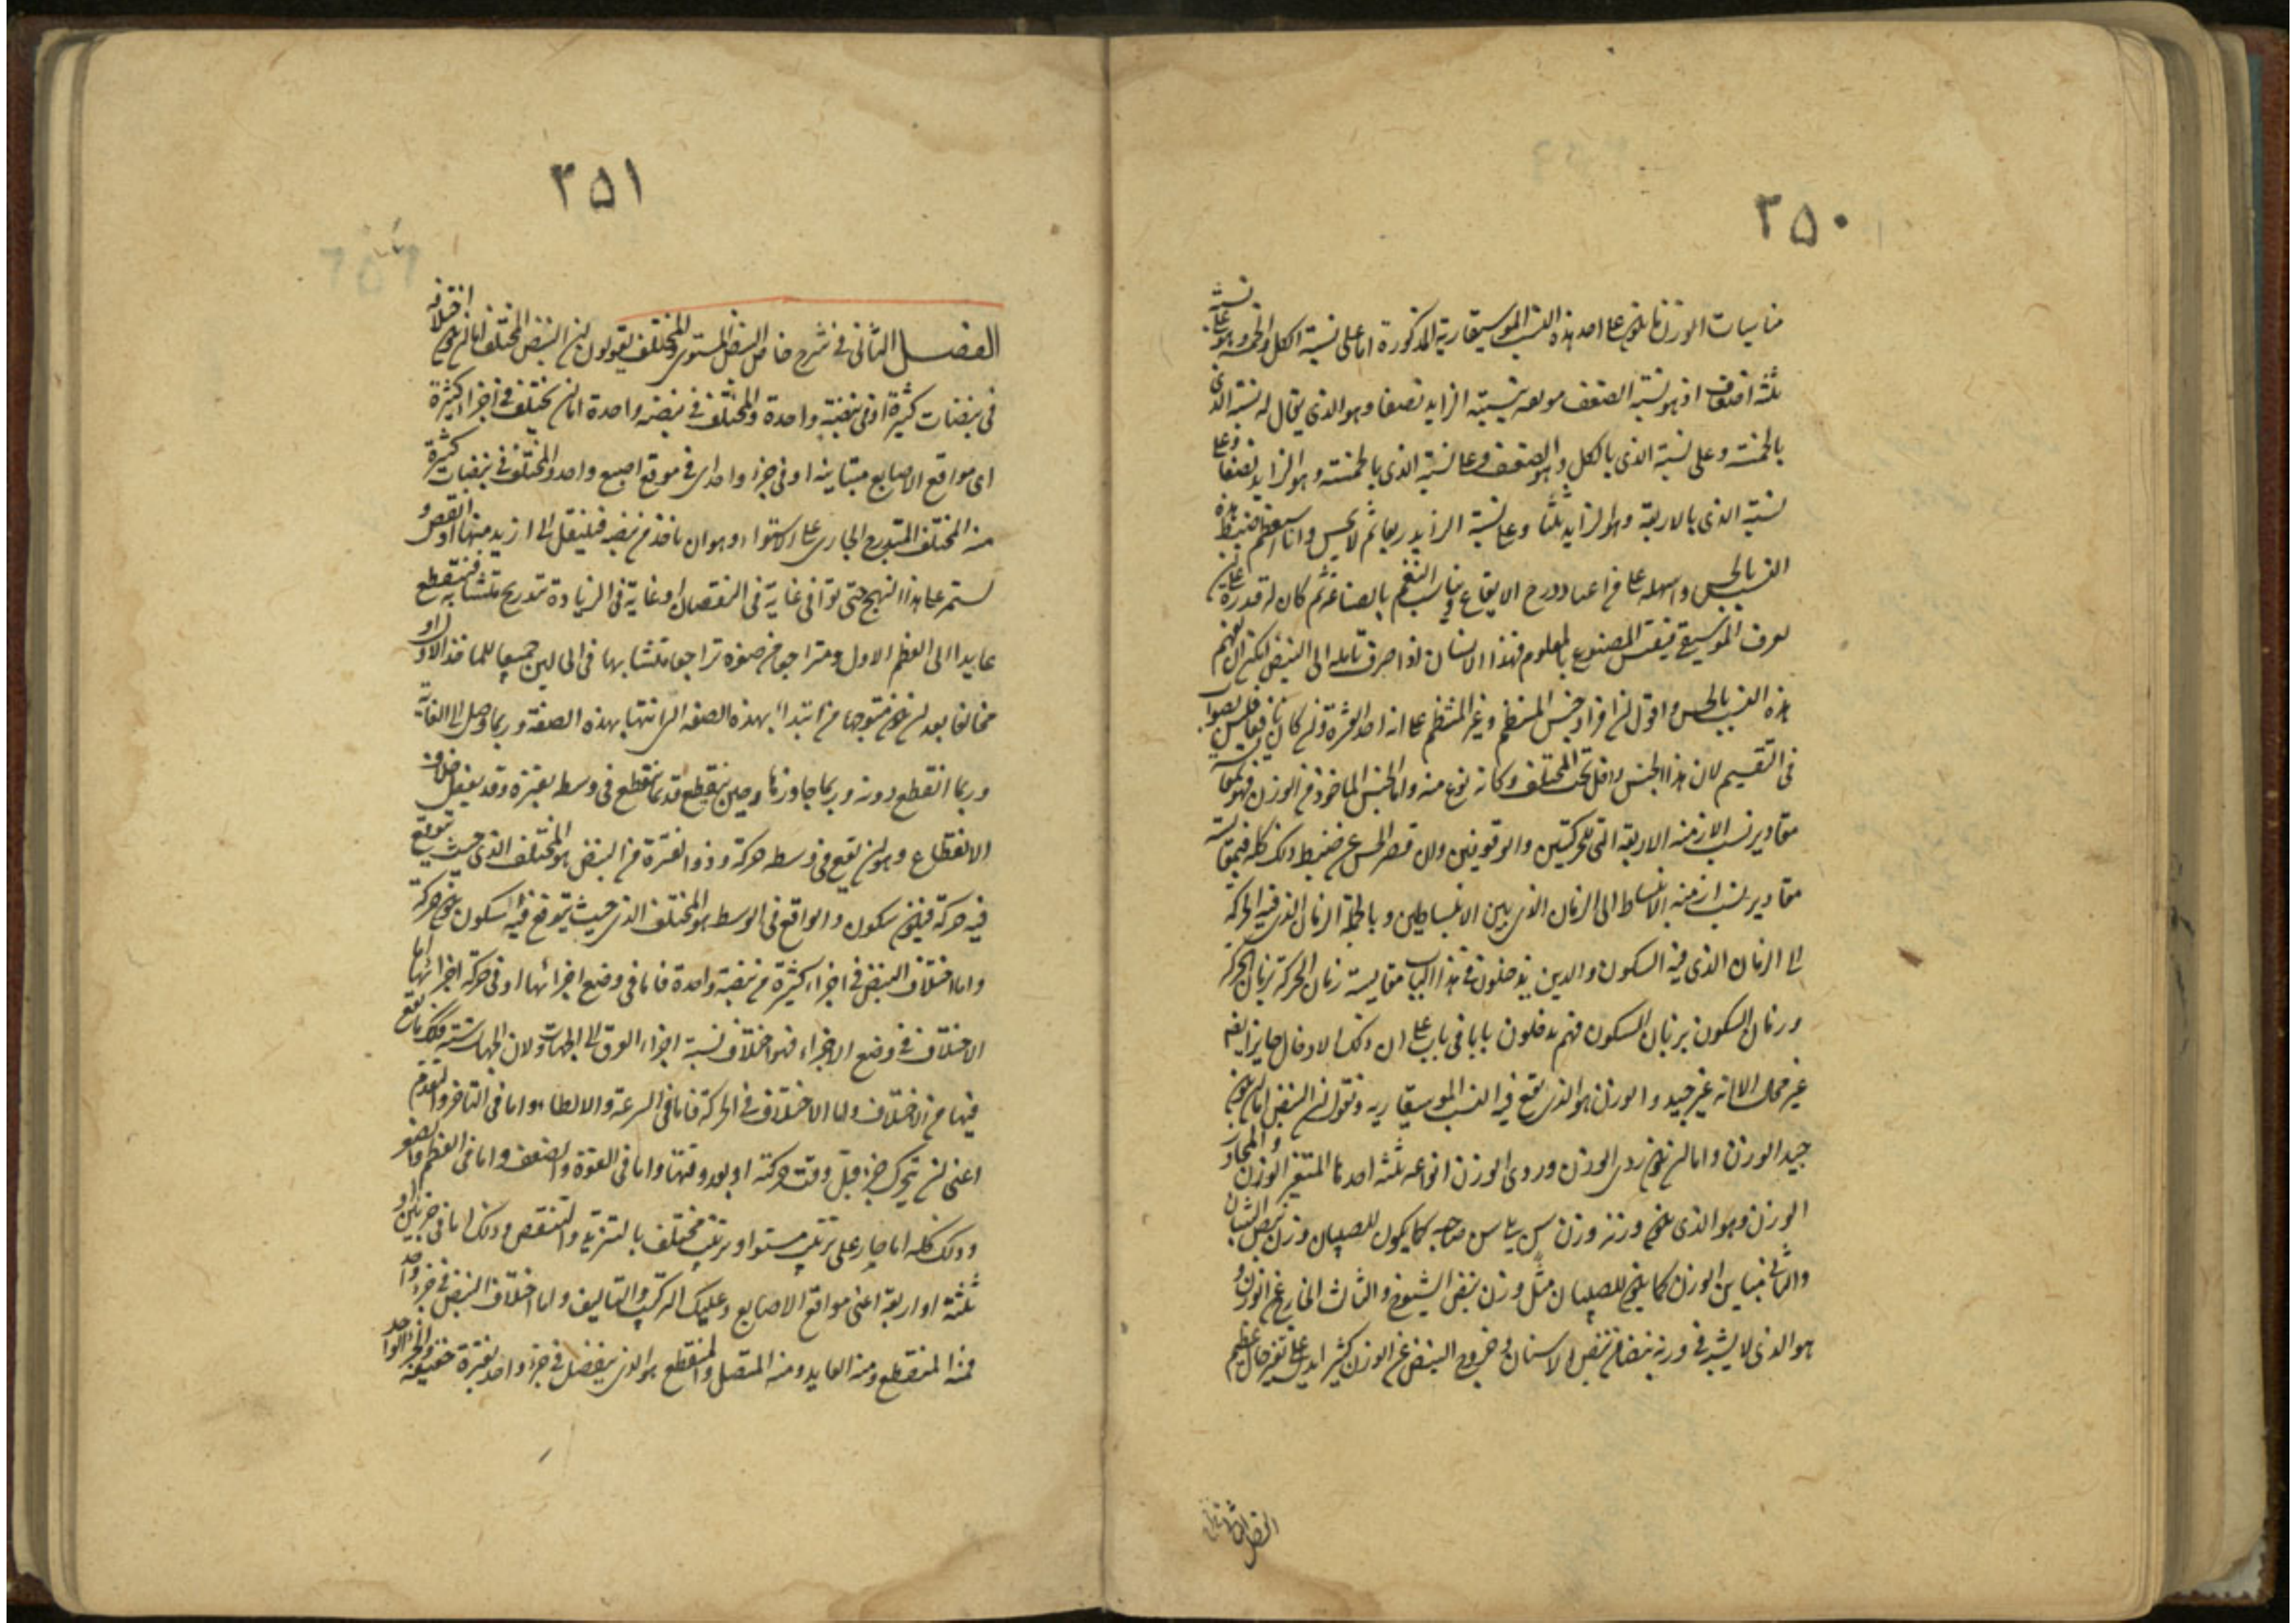 ٣٥٠
مناسبات الوزن ما يكون على احد هذه النسب الموسيقارية المذكورة اما على نسبة الكل والخمسة وهو على نسبة
ثلثة اضعاف اذ هو نسبة الضعف مولفه بنسبة الزايد نصفا وهو الذى يقال له نسبة الذى
بالخمسة وعلى نسبة الذى بالكل وهو الضعف وعلى نسبة الذى بالخمسة وهو الزايد نصفا وعلى
نسبة الذى بالاربعة وهو الزايد ثلثا وعلى نسبة الزايد ربعا ثم لا يحس وانا استعظم ضبط هذه
النسب بالحس واسهله على من اعتاد درج الايقاع وتناسب النغم بالصناعة ثم كان له قدرة على ان
يعرف الموسيقى فيقيس المصنوع بالمعلوم فهذا الانسان اذا صرف تامله الى النبض امكن ان يفهم
هذه النسب بالحس واقول ان افراد جنس المنتظم وغير المنتظم على انه احد العشرة وان كان نافعا فليس بصواب
فى التقسيم لان هذا الجنس داخل تحت المختلف وكانه نوع منه واما الجنس الماخوذ من الوزن فهو بمقايسة
مقادير نسب الازمنه الاربعة التى للحركتين والوقوفين وان قصر الحس عن ضبط ذلك كله فبمقايسة
مقادير نسب ازمنه الانبساط الى الزمان الذى بين الانبساطين وبالجملة الزمان الذى فيه الحركة
الى الزمان الذى فيه السكون والذين يدخلون فى هذا الباب مقايسة زمان الحركة بزمان الحركة
وزمان السكون بزمان السكون فهم يدخلون بابا فى باب على ان ذلك الادخال جايز ايضا
غير محال الا انه غير جيد والوزن هو الذى يقع فيه النسب الموسيقاريه ونقول ان النبض اما ان يكون
جيد الوزن واما ان يكون ردى الوزن وردى الوزن انواعه ثلثه احدها المتغير الوزن والمجاوز
الوزن وهو الذى يكون وزنه وزن سن يلى سن صاحبه كما يكون للصبيان وزن نبض الشبان
والثانى مباين الوزن كما يكون للصبيان مثل وزن نبض الشيوخ والثالث الخارج عن الوزن و
هو الذى لا يشبه فى وزنه نبضا من نبض الاسنان وخروج النبض عن الوزن كثيرا يدل على تغير حال عظيم
الفصل الثانى
٣٥١
الفصل الثانى فى شرح خاص النبض المستوى والمختلف يقولون ان النبض المختلف اما ان يكون اختلافه
فى نبضات كثيرة او فى نبضة واحدة والمختلف فى نبضه واحدة اما ان يختلف فى اجزاء كثيرة
اى مواقع الاصابع متباينه او فى جزء واحد اى فى موقع اصبع واحد والمختلف فى نبضات كثيرة
منه المختلف المتدرج الجارى على الاستواء وهو ان ياخذ من نبضه فينتقل الى ازيد منها او انقص و
يستمر على هذا النهج حتى توافى غاية فى النقصان او غاية فى الزيادة بتدريج متشابه فينقطع
عايدا الى العظم الاول او متراجعا من صغره تراجعا متشابها فى الحالين جميعا للماخذ الاول او
مخالفا بعد ان يكون متوجها من ابتداء بهذه الصفه الى انتهاء بهذه الصفة وربما وصل الى الغاية
وربما انقطع دونه وربما جاوزها وحين ينقطع قد ينقطع فى وسطه بفترة وقد يفعل خلاف
الانقطاع وهو ان يقع فى وسطه حركة وذو الفترة من النبض هو المختلف الذى حيث يتوقع
فيه حركة فيكون سكون والواقع فى الوسط هو المختلف الذى حيث يتوقع فيه السكون يكون حركة
واما اختلاف النبض فى اجزاء كثيرة من نبضة واحدة فاما فى وضع اجزائها او فى حركة اجزائها اما
الاختلاف فى وضع الاجزاء فهو اختلاف نسبة اجزاء العرق الى الجهات ولان الجهات ستة فكذلك ما يقع
فيها من الاختلاف واما الاختلاف فى الحركة فاما فى السرعة والابطاء واما فى التاخر والتقدم
اعنى ان يتحرك جزء قبل وقت حركته او بعد وقتها واما فى القوة والضعف واما فى العظم والصغر
وذلك كله اما جار على ترتيب مستو او ترتيب مختلف بالتزيد والتنقص وذلك اما فى جزئين او
ثلثة او اربعة اعنى مواقع الاصابع وعليك التركيب والتاليف واما اختلاف النبض فى جزء واحد
فمنه المنقطع ومنه العايد ومنه المتصل والمنقطع هو الذى ينفصل فى جزء واحد بفترة حقيقية والجزء الواحد